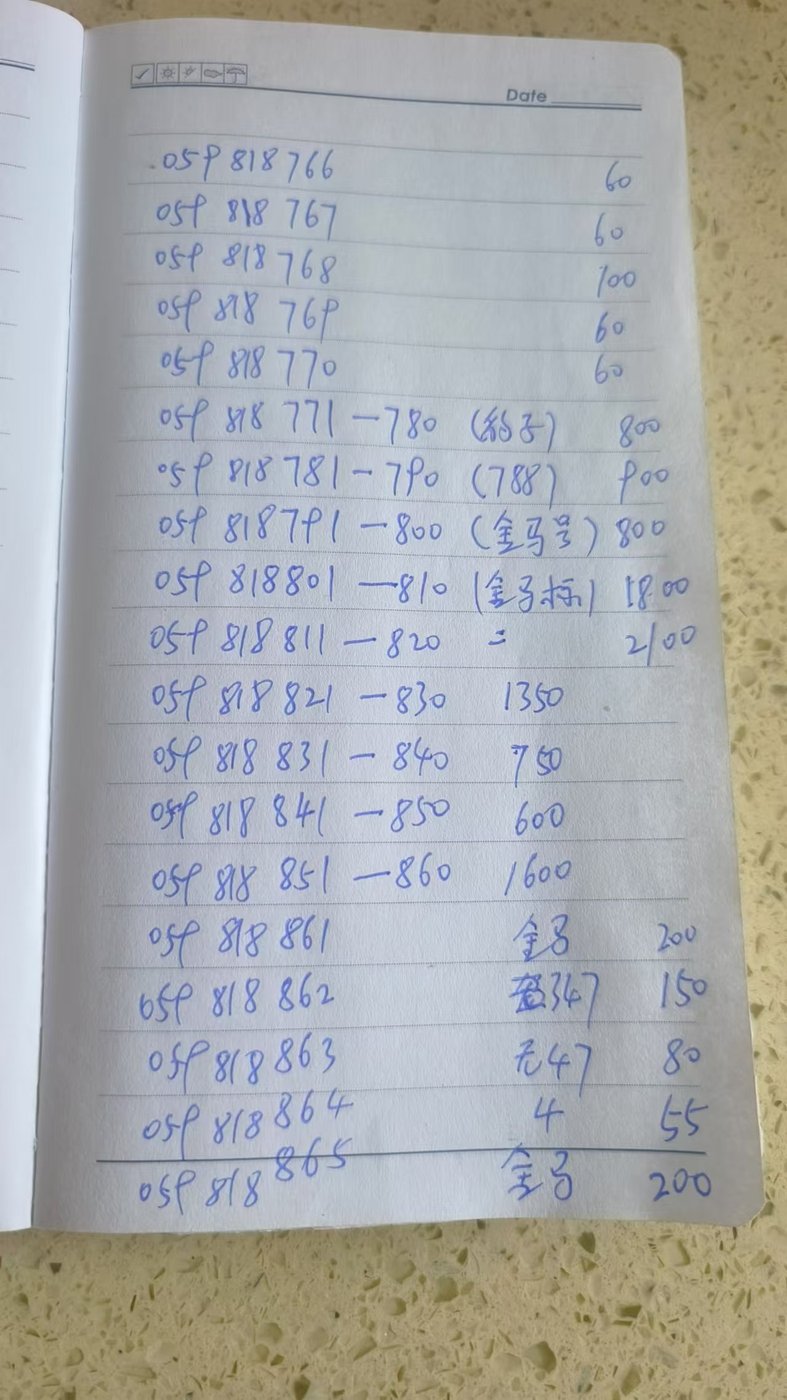 Date
059 818 766 60
059 818 767 60
059 818 768 100
059 818 769 60
059 818 770 60
059 818 771—780 (豹子) 800
059 818 781—790 (788) 900
059 818791—800 (金马号) 800
059 818801—810 (金马标) 1800
059 818 811—820 = 2100
059 818 821—830 1350
059 818 831—840 750
059 818 841—850 600
059 818 851—860 1600
059 818 861 金马 200
059 818 862 347 150
059 818 863 无47 80
059 818 864 4 55
059 818 865 金马 200